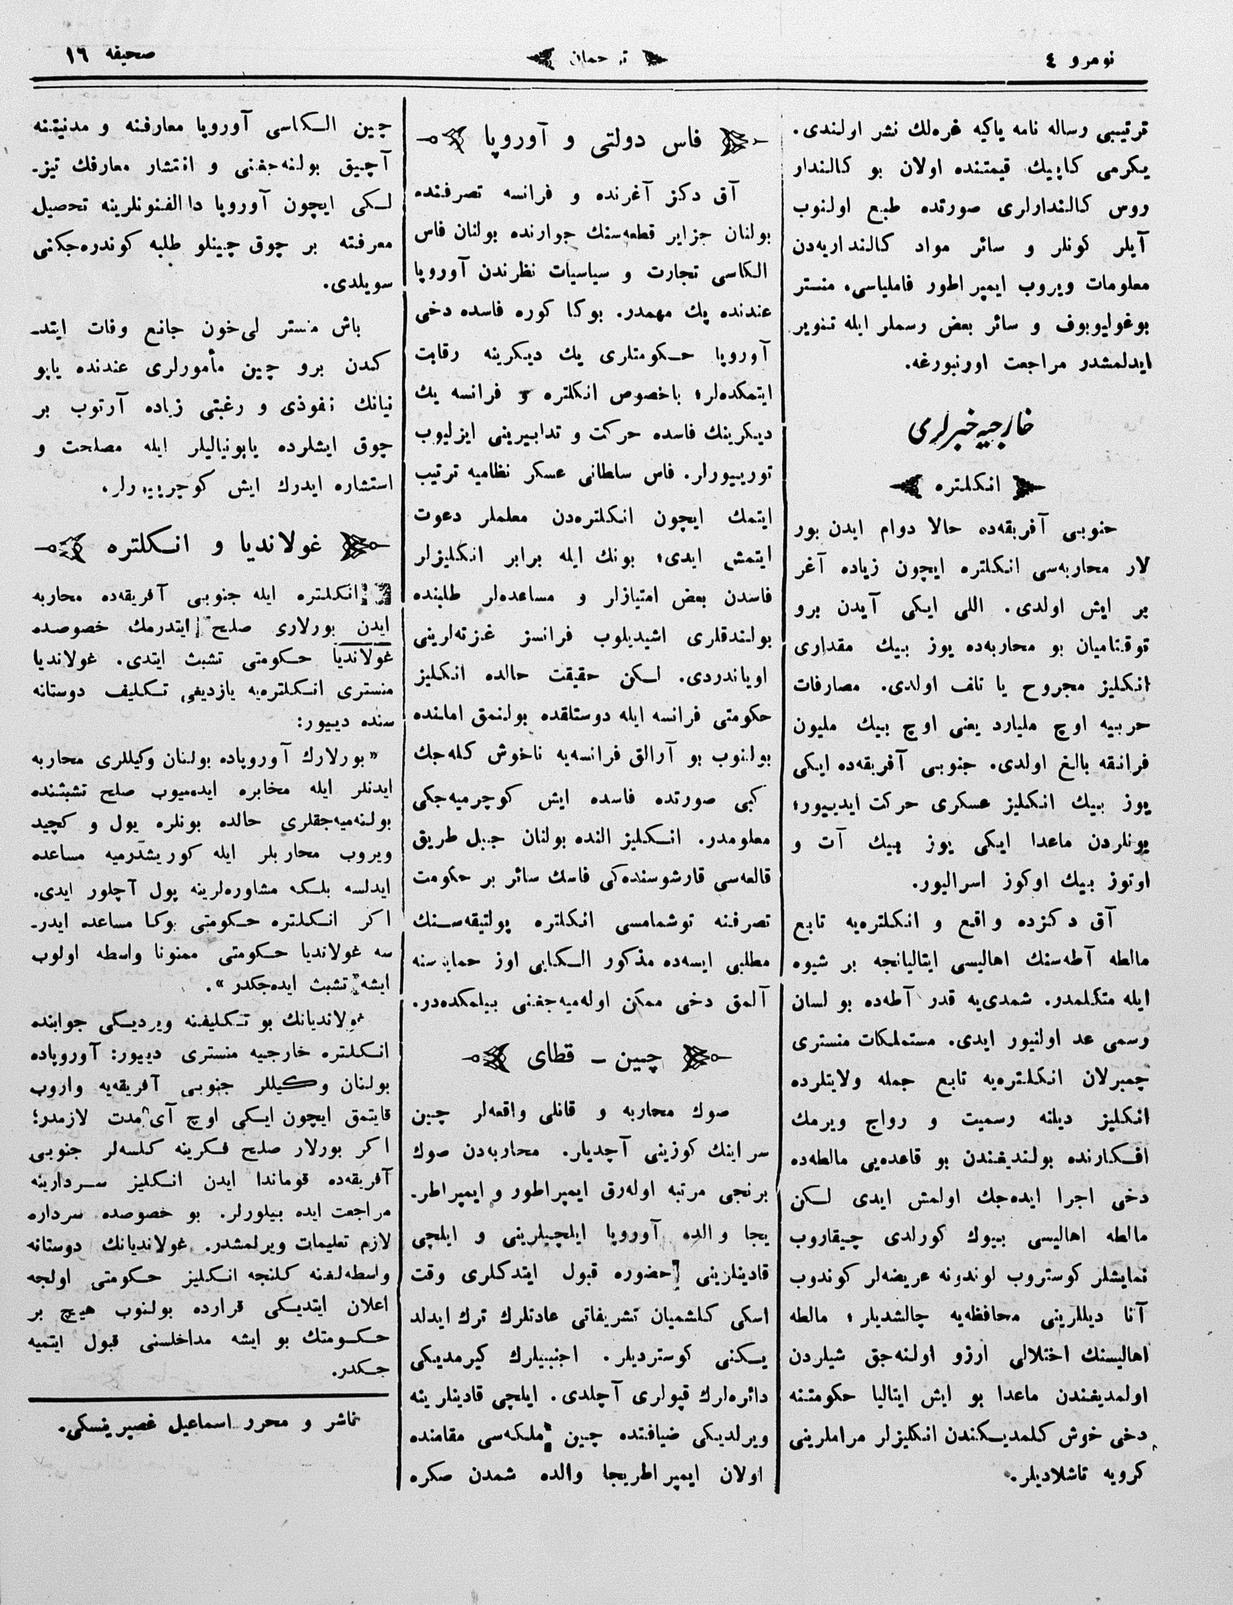 نومرو ٤
ترجمان
صحیفه ١٦
ترتیبی رساله نامه یاکیه غره‌لك نشر اولندی.
یکرمی کاپیك قیمتنده اولان بو کالندار
روس کالندارلری صورتده طبع اولنوب
آیلر کونلر و سائر مواد کالنداریه‌دن
معلومات ویروب ایمپراطور فاملیاسی. منستر
بوغولیوبوف و سائر بعض رسملر ایله تنویر
ایدلمشدر مراجعت اورنبورغه.
خارجیه خبرلری
انکلتره
جنوبی آفریقه‌ده حالا دوام ایدن بور
لار محاربه‌سی انکلتره ایچون زیاده آغر
بر ایش اولدی. اللی ایکی آیدن برو
توقتامیان بو محاربه‌ده یوز بیك مقداری
انکلیز مجروح یا تلف اولدی. مصارفات
حربیه اوچ ملیارد یعنی اوچ بیك ملیون
فرانقه بالغ اولدی. جنوبی آفریقه‌ده ایکی
یوز بیك انکلیز عسکری حرکت ایدییور؛
بونلردن ماعدا ایکی یوز بیك آت و
اوتوز بیك اوکوز اسرالیور.
آق دکزده واقع و انکلتره‌یه تابع
مالطه آطه‌سنك اهالیسی ایتالیانجه بر شیوه
ایله متکلمدر. شمدی‌یه قدر آطه‌ده بو لسان
رسمی عد اولنیور ایدی. مستملکات منستری
چمبرلان انکلتره‌یه تابع جمله ولایتلرده
انکلیز دیلنه رسمیت و رواج ویرمك
افکارنده بولندیغندن بو قاعده‌یی مالطه‌ده
دخی اجرا ایده‌جك اولمش ایدی لکن
مالطه اهالیسی بیوك کورلدی چیقاروب
نمایشلر کوستروب لوندونه عریضه‌لر کوندوب
آنا دیللرینی محافظه‌یه چالشدیلر؛ مالطه
اهالیسنك اختلالی ارزو اولنه‌جق شیلردن
اولمدیغندن ماعدا بو ایش ایتالیا حکومتنه
دخی خوش کلمدیکندن انکلیزلر مراملرینی
کرویه تاشلادیلر.
فاس دولتی و آوروپا
آق دکز آغرنده و فرانسه تصرفنده
بولنان جزایر قطعه‌سنك جوارنده بولنان فاس
الکاسی تجارت و سیاسیات نظرندن آوروپا
عندنده پك مهمدر. بوکا کوره فاسده دخی
آوروپا حکومتلری یك دیکرینه رقابت
ایتمکده‌لر؛ باخصوص انکلتره و فرانسه یك
دیکرینك فاسده حرکت و تدابیرینی ایزلیوب
توریبورلر. فاس سلطانی عسکر نظامیه ترتیب
ایتمك ایچون انکلتره‌دن معلملر دعوت
ایتمش ایدی؛ بونك ایله برابر انکلیزلر
فاسدن بعض امتیازلر و مساعده‌لر طلبنده
بولندقلری اشیدیلوب فرانسز غزته‌لرینی
اویاندردی. لکن حقیقت حالده انکلیز
حکومتی فرانسه ایله دوستلقده بولنمق املنده
بولنوب بو آرالق فرانسه‌یه ناخوش کله‌جك
کبی صورتده فاسده ایش کوچرمیه‌جکی
معلومدر. انکلیز النده بولنان جبل طریق
قالعه‌سی قارشوسنده‌کی فاسك سائر بر حکومت
تصرفنه توشمامسی انکلتره پولتیقه‌سنك
مطلبی ایسه‌ده مذکور الکایی اوز حمایه‌سنه
آلمق دخی ممکن اوله‌میه‌جغنی بیلمکده‌در.
چین – قطای
صوك محاربه و قانلی واقعه‌لر چین
سراینك کوزینی آچدیلر. محاربه‌دن صوك
برنجی مرتبه اوله‌رق ایمپراطور و ایمپراطر-
یجا والده آوروپا ایلچیلرینی و ایلچی
قادینلرینی حضوره قبول ایتدکلری وقت
اسکی کلشمیان تشریفاتی عادتلرك ترك ایدلد
یکنی کوستردیلر. اجنبیلرك کیرمدیکی
دائره‌لرك قپولری آچلدی. ایلچی قادینلرینه
ویرلدیکی ضیافتده چین ملکه‌سی مقامنده
اولان ایمپراطریجا والده شمدن صکره
چین الکاسی آوروپا معارفنه و مدنیتنه
آچیق بولنه‌جغنی و انتشار معارفك تیز-
لکی ایچون آوروپا دالفنونلرینه تحصیل
معرفته بر چوق چینلو طلبه کوندره‌جکنی
سویلدی.
باش منستر لی‌خون جانع وفات ایتد-
کدن برو چین مأمورلری عندنده یاپو
نیانك نفوذی و رغبتی زیاده آرتوب بر
چوق ایشلرده یاپونیالیلر ایله مصلحت و
استشاره ایدرك ایش کوچرییورلر.
غولاندیا و انکلتره
انکلتره ایله جنوبی آفریقه‌ده محاربه
ایدن بورلاری صلح ایتدرمك خصوصده
غولاندیا حکومتی تشبث ایتدی. غولاندیا
منستری انکلتره‌یه یازدیغی تکلیف دوستانه
سنده دییور:
«بورلارك آوروپاده بولنان وکیللری محاربه
ایدنلر ایله مخابره ایده‌میوب صلح تشبثنده
بولنه‌میه‌جقلری حالده بونلره یول و کچید
ویروب محاربلر ایله کوریشدرمیه مساعده
ایدلسه بلکه مشاوره‌لرینه یول آچلور ایدی.
اکر انکلتره حکومتی بوکا مساعده ایدر-
سه غولاندیا حکومتی ممنونا واسطه اولوب
ایشه تشبث ایده‌جکدر».
غولاندیانك بو تکلیفنه ویردیکی جوابنده
انکلتره خارجیه منستری دییور: آوروپاده
بولنان وکیللر جنوبی آفریقه‌یه واروب
قایتمق ایچون ایکی اوچ آی مدت لازمدر؛
اکر بورلار صلح فکرینه کلسه‌لر جنوبی
آفریقه‌ده قوماندا ایدن انکلیز سردارینه
مراجعت ایده بیلورلر. بو خصوصده سرداره
لازم تعلیمات ویرلمشدر. غولاندیانك دوستانه
واسطه‌لغنه کلنجه انکلیز حکومتی اولجه
اعلان ایتدیکی قرارده بولنوب هیچ بر
حکومتك بو ایشه مداخلسنی قبول ایتمیه
جکدر.
ناشر و محرر اسماعیل غصپرینسکی.